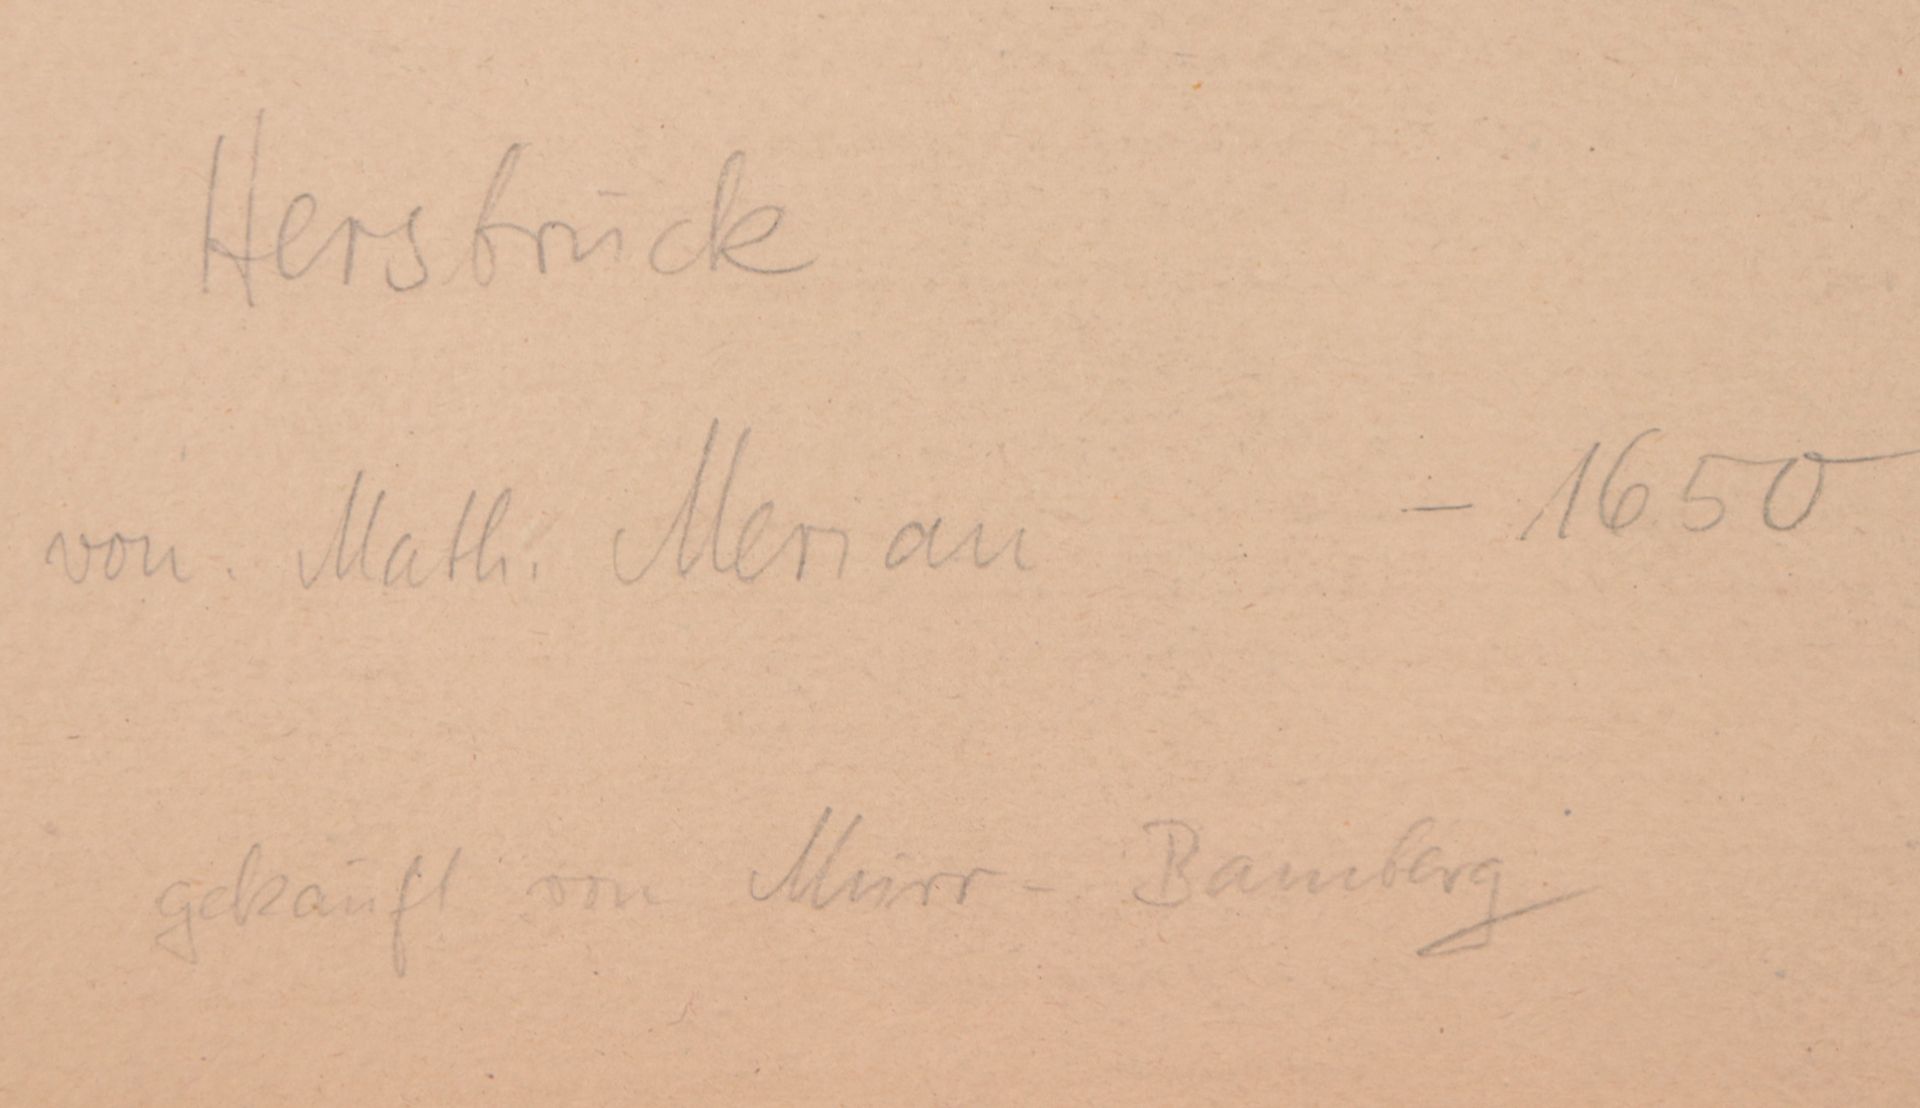 Hersbrück
von. Math. Merian – 1650
gekauft von Murr – Bamberg